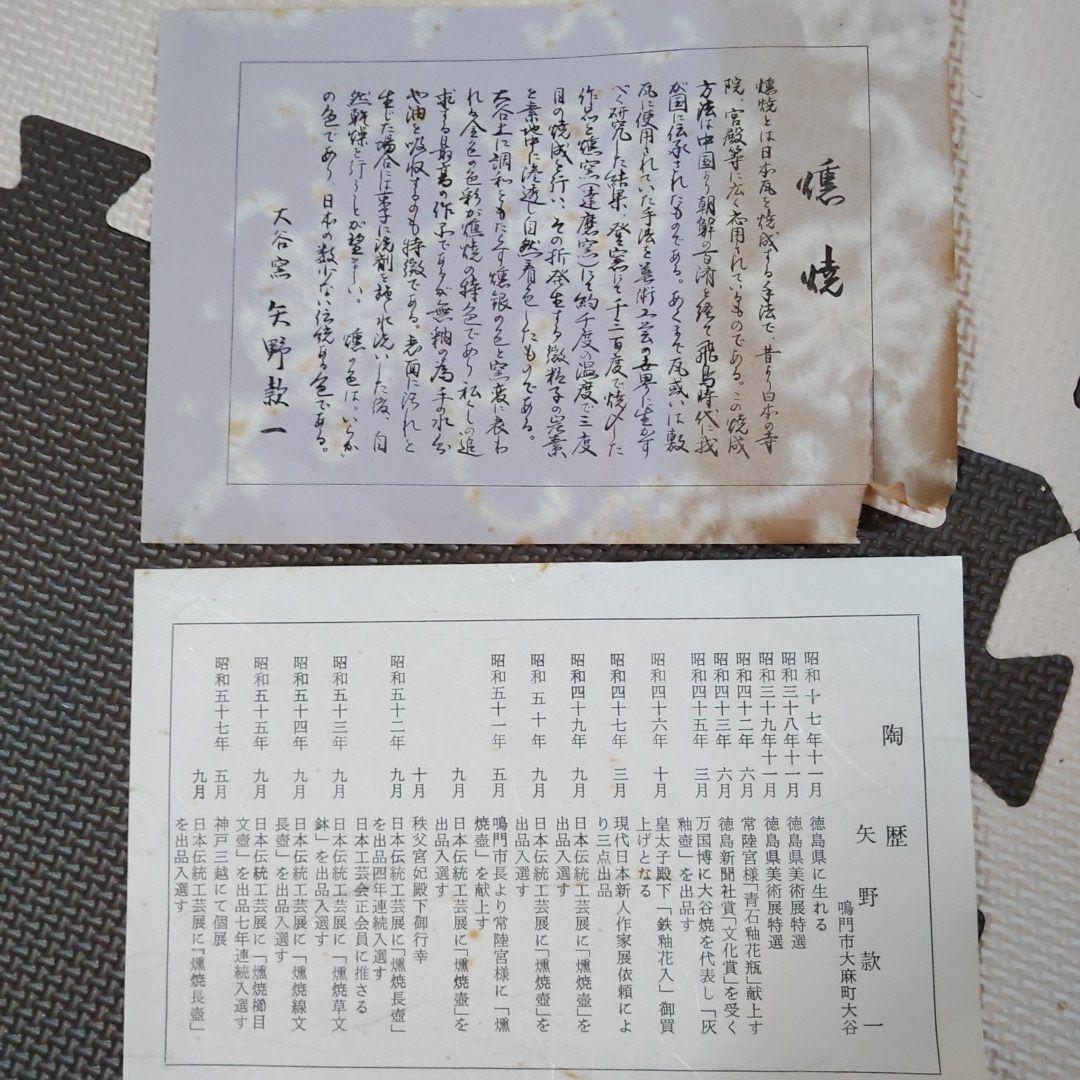 燻焼
燻焼とは日本瓦を焼成する手法で、昔より日本の寺
院、宮殿等に広く応用されているものである。この焼成
方法は中国より朝鮮の百済を経て飛鳥時代に我
が国に伝承されたものである。あくまで瓦或いは敷
瓦に使用されていた手法を美術工芸の世界に生かす
べく研究した結果、登窯にて千二百度で焼〆した
作品を燻窯(達磨窯)にて約千度の温度で三度
目の焼成を行い、その折発生する微粒子の炭素
を素地中に浸透し自然着色したものである。
大谷土に調和をもたらす燻銀の色と窯変に表わ
れる金色の色彩が燻焼の特色であり私としの追
求する最高の作品であるが無釉の為手の水分
や油を吸収するのも特徴である。表面に汚れを
生じた場合には事に洗剤を施し水洗いした後、自
然乾燥を行うことが望ましい。 燻の色は。いらか
の色であり 日本の数少ない伝統ある色である。
大谷窯 矢野款一
陶歴
矢野款一
鳴門市大麻町大谷
昭和十七年十一月 徳島県に生れる
昭和三十八年十一月 徳島県美術展特選
昭和三十九年十一月 徳島県美術展特選
昭和四十二年 六月 常陸宮様「青石釉花瓶」献上す
昭和四十三年 六月 徳島新聞社賞「文化賞」を受く
昭和四十五年 三月 万国博に大谷焼を代表し「灰
釉壺」を出品す
昭和四十六年 十月 皇太子殿下「鉄釉花入」御買
上げとなる
昭和四十七年 三月 現代日本新人作家展依頼によ
り三点出品
昭和四十九年 九月 日本伝統工芸展に「燻焼壺」を
出品入選す
昭和五十年 九月 日本伝統工芸展に「燻焼壺」を
出品入選す
昭和五十一年 五月 鳴門市長より常陸宮様に「燻
焼壺」を献上す
九月 日本伝統工芸展に「燻焼壺」を
出品入選す
十月 秩父宮妃殿下御行幸
昭和五十二年 九月 日本伝統工芸展に「燻焼長壺」
を出品四年連続入選す
日本工芸会正会員に推さる
昭和五十三年 九月 日本伝統工芸展に「燻焼草文
鉢」を出品入選す
昭和五十四年 九月 日本伝統工芸展に「燻焼線文
長壺」を出品入選す
昭和五十五年 九月 日本伝統工芸展に「燻焼櫛目
文壺」を出品七年連続入選す
昭和五十七年 五月 神戸三越にて個展
九月 日本伝統工芸展に「燻焼長壺」
を出品入選す